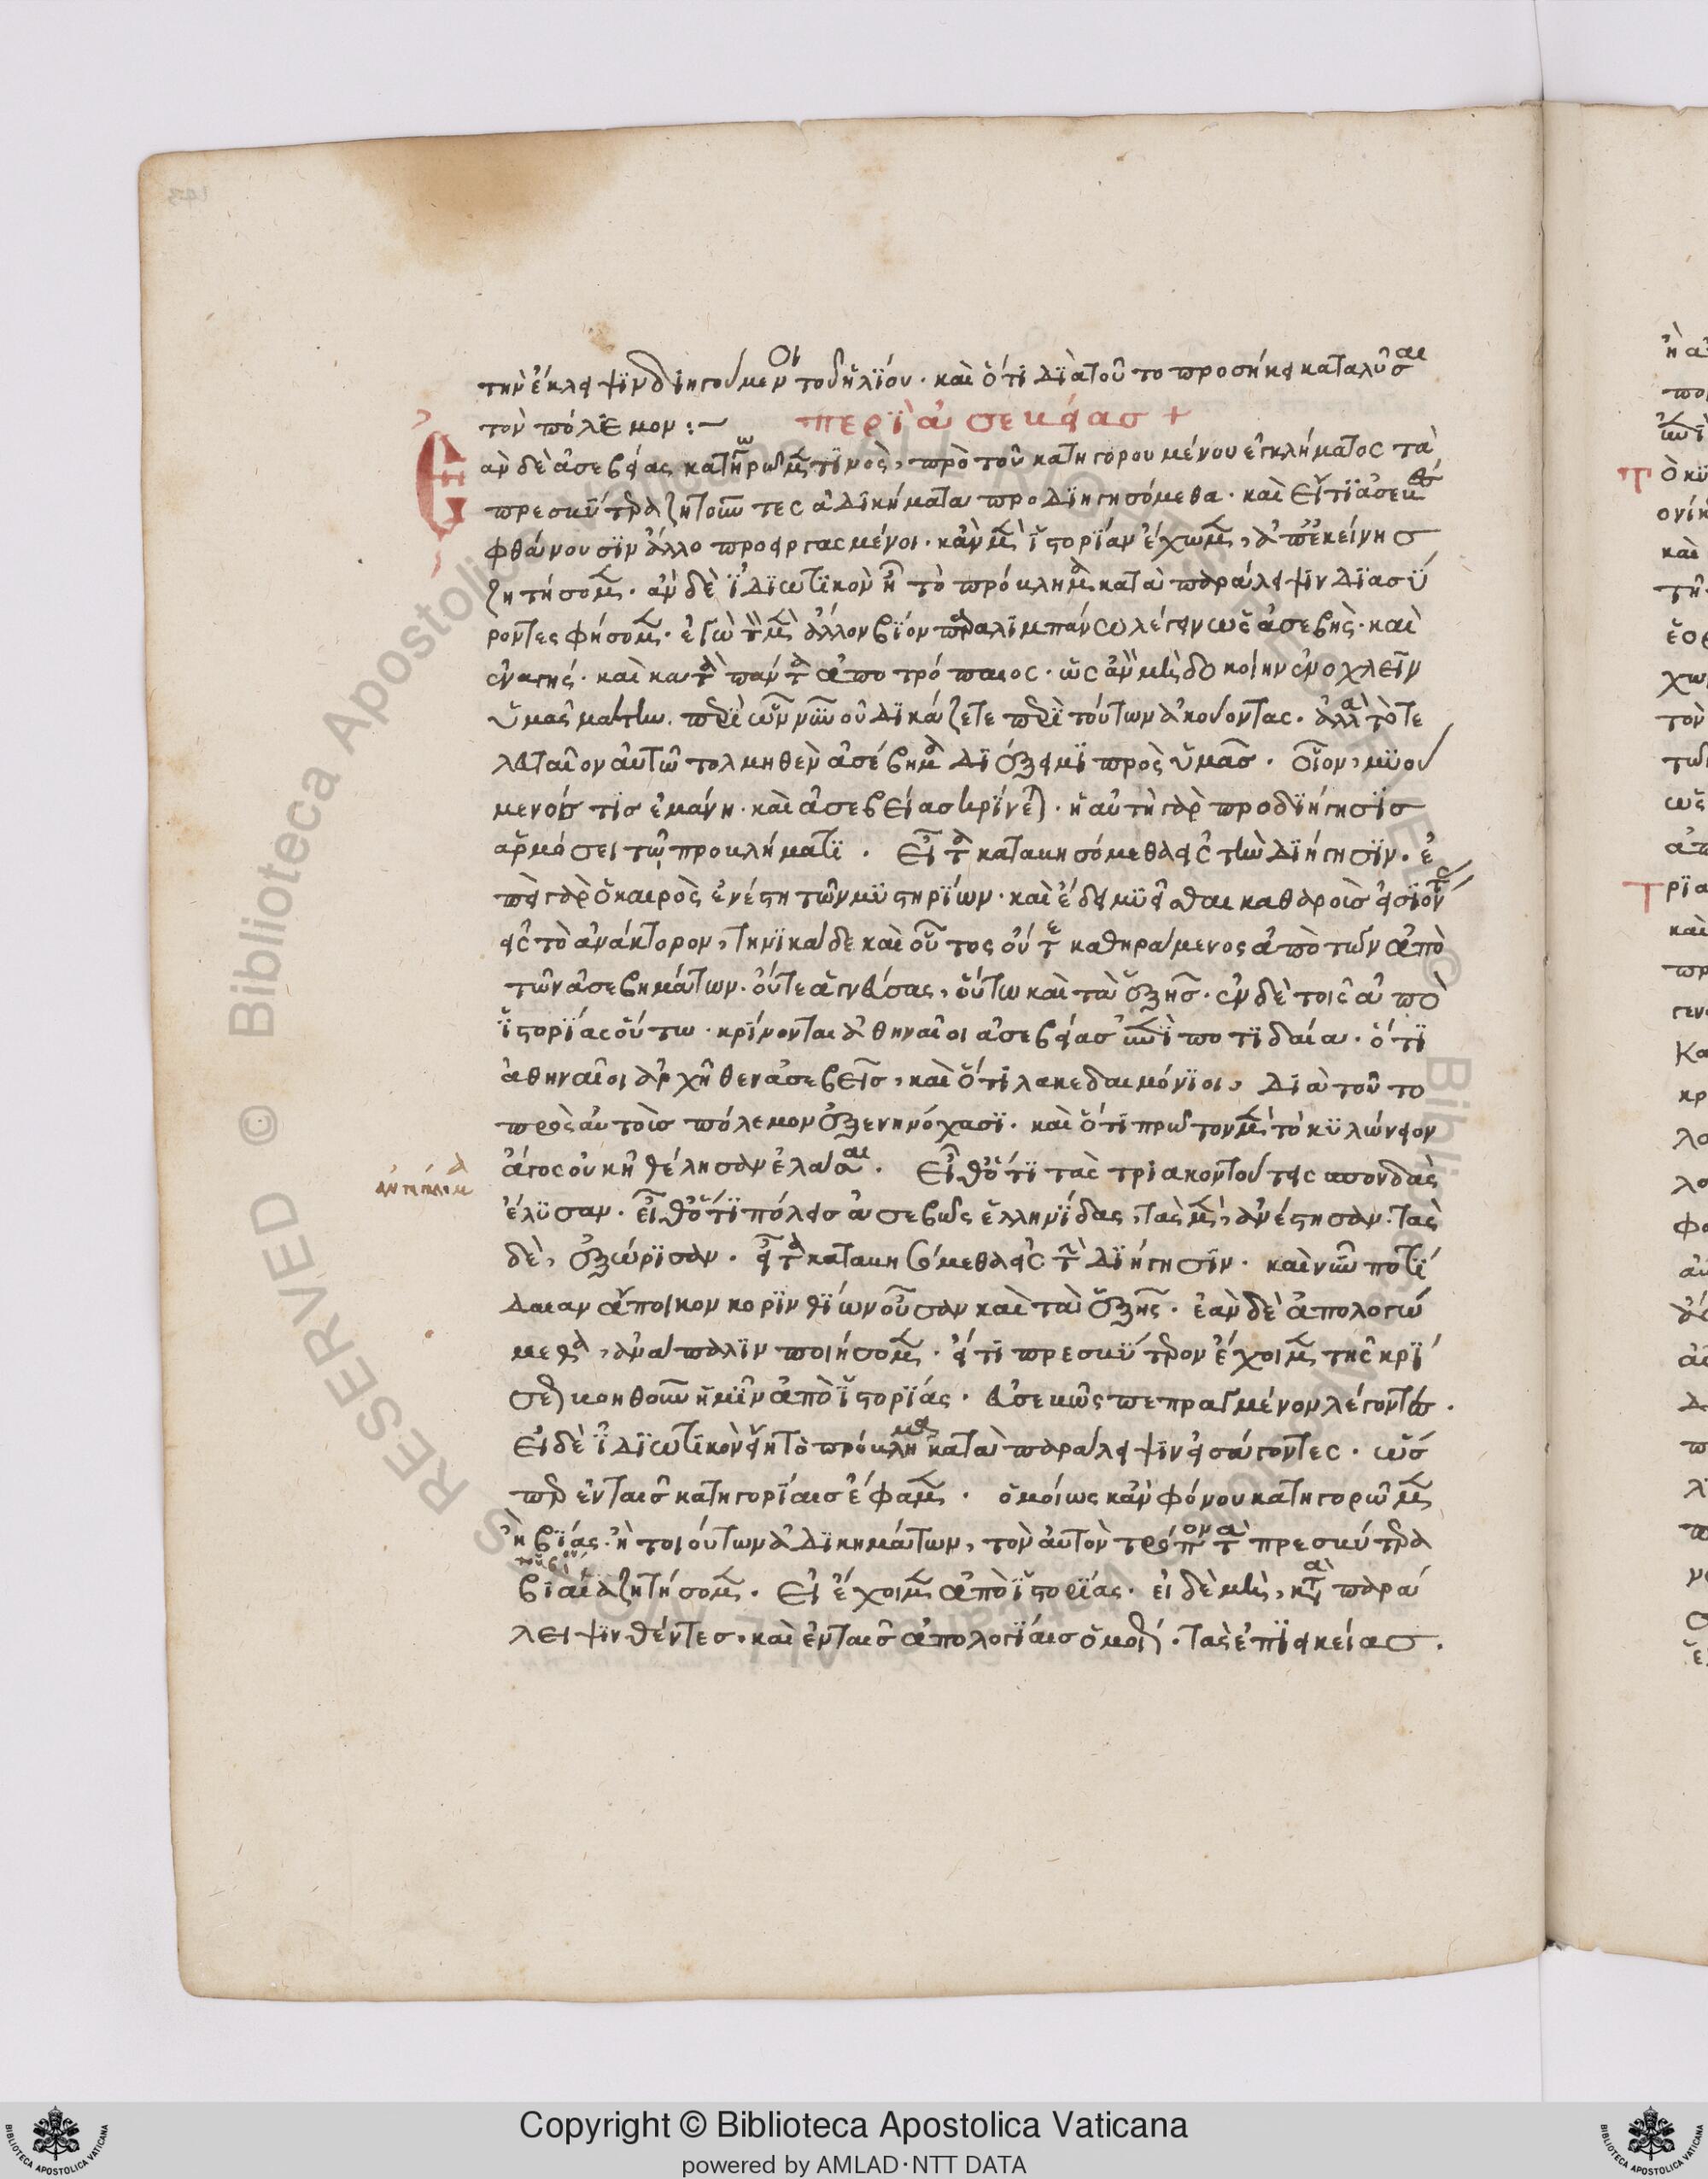 τὴν ἔκλειψιν διηγούμενοι τοῦ ἡλίου · καὶ ὅτι διὰ τοῦτο προσήκει καταλῦσαι
τὸν πόλεμον :~ περὶ ἀσεβείας +
Ἐὰν δὲ ἀσεβείας κατηγορῶμεν τινὸς, πρὸ τοῦ κατηγορουμένου ἐγκλήματος τὰ
πρεσβύτερα ζητοῦντες ἀδικήματα προδιηγησόμεθα · καὶ εἴ τι ἀσεβὲς
φθάνουσιν ἄλλο προειργασμένοι · κἂν μὲν ἱστορίαν ἔχωμεν, ἀπ' ἐκείνης
ζητήσομεν · ἂν δὲ ἰδιωτικὸν ᾖ τὸ πρόβλημα κατὰ παράλειψιν διασύ
ροντες φήσομεν · ἐγὼ τὸν μὲν ἄλλον βίον παραλιμπάνω λέγειν ὡς ἀσεβὴς · καὶ
ἐναγής · καὶ κατὰ πάντα ἀποτρόπαιος · ὡς ἂν μὴ δοκοίην ἐνοχλεῖν
ὑμᾶς μάτην · περὶ ὧν νῦν οὐ δικάζετε περὶ τούτων ἀκούοντας · ἀλλὰ τὸ τε
λευταῖον αὐτῷ τολμηθὲν ἀσέβημα διέξειμι πρὸς ὑμᾶς · οἷον, μυού
μενός τις ἐμάνη · καὶ ἀσεβείας κρίνεται · ἡ αὐτὴ γὰρ προδιήγησις
ἁρμόσει τῷ προβλήματι · εἶτα καταβησόμεθα εἰς τὴν διήγησιν · ἐ
πεὶ γὰρ ὁ καιρὸς ἐνέστη τῶν μυστηρίων · καὶ ἔδει μυεῖσθαι καθαροῖς εἰσιόντας
εἰς τὸ ἀνάκτορον, τηνικαῦδε καὶ οὗτος οὔτε καθηράμενος ἀπὸ τῶν ἀπὸ
τῶν ἀσεβημάτων · οὔτε ἁγνεύσας, οὕτω καὶ τὰ ἑξῆς · ἐν δὲ τοῖς ἀπὸ
ἱστορίας οὕτω · κρίνονται ἀθηναῖοι ἀσεβείας ἐπὶ ποτιδαία · ὅτι
ἀθηναῖοι ἀρχῆθεν ἀσεβεῖς, καὶ ὅτι λακεδαιμόνιοι, διὰ τοῦτο
πρὸς αὐτοὺς πόλεμον ἐξενηνόχασι · καὶ ὅτι πρῶτον μὲν τὸ κυλώνειον
ἄγος οὐκ ἠθέλησαν ἐλάσαι · εἶθ' ὅτι τὰς τριακοντούτεις σπονδὰς
ἔλυσαν · εἶθ' ὅτι πόλεις ἀσεβῶς ἑλληνίδας, τὰς μὲν, ἀνέστησαν · τὰς
δὲ, ἐξώρισαν · εἶτα καταβησόμεθα εἰς τὴν διήγησιν · καὶ νῦν ποτί
δαιαν ἄποικον κορινθίων οὖσαν καὶ τὰ ἑξῆς · ἐὰν δὲ ἀπολογώ
μεθα, ἀνάπαλιν ποιήσομεν · εἴ τι πρεσβύτερον ἔχοιμεν τῆς κρί
σεως βοηθοῦν ἡμῖν ἀπὸ ἱστορίας · εὐσεβῶς πεπραγμένον λέγοντες ·
εἰ δὲ ἰδιωτικὸν εἴη τὸ πρόβλημα κατὰ παράλειψιν εἰσάγοντες · ὥσ
περ ἐν ταῖς κατηγορίαις ἔφαμεν · ὁμοίως κἂν φόνου κατηγορῶμεν
ἢ βίας · ἢ τοιούτων ἀδικημάτων, τὸν αὐτὸν τρόπον τὰ πρεσβύτερα
βίαια ζητήσομεν · εἰ ἔχοιμεν ἀπὸ ἱστορίας · εἰ δὲ μὴ, κατὰ παρά
λειψιν θέντες · καὶ ἐν ταῖς ἀπολογίαις ὁμοίως · τὰς ἐπιεικείας ·